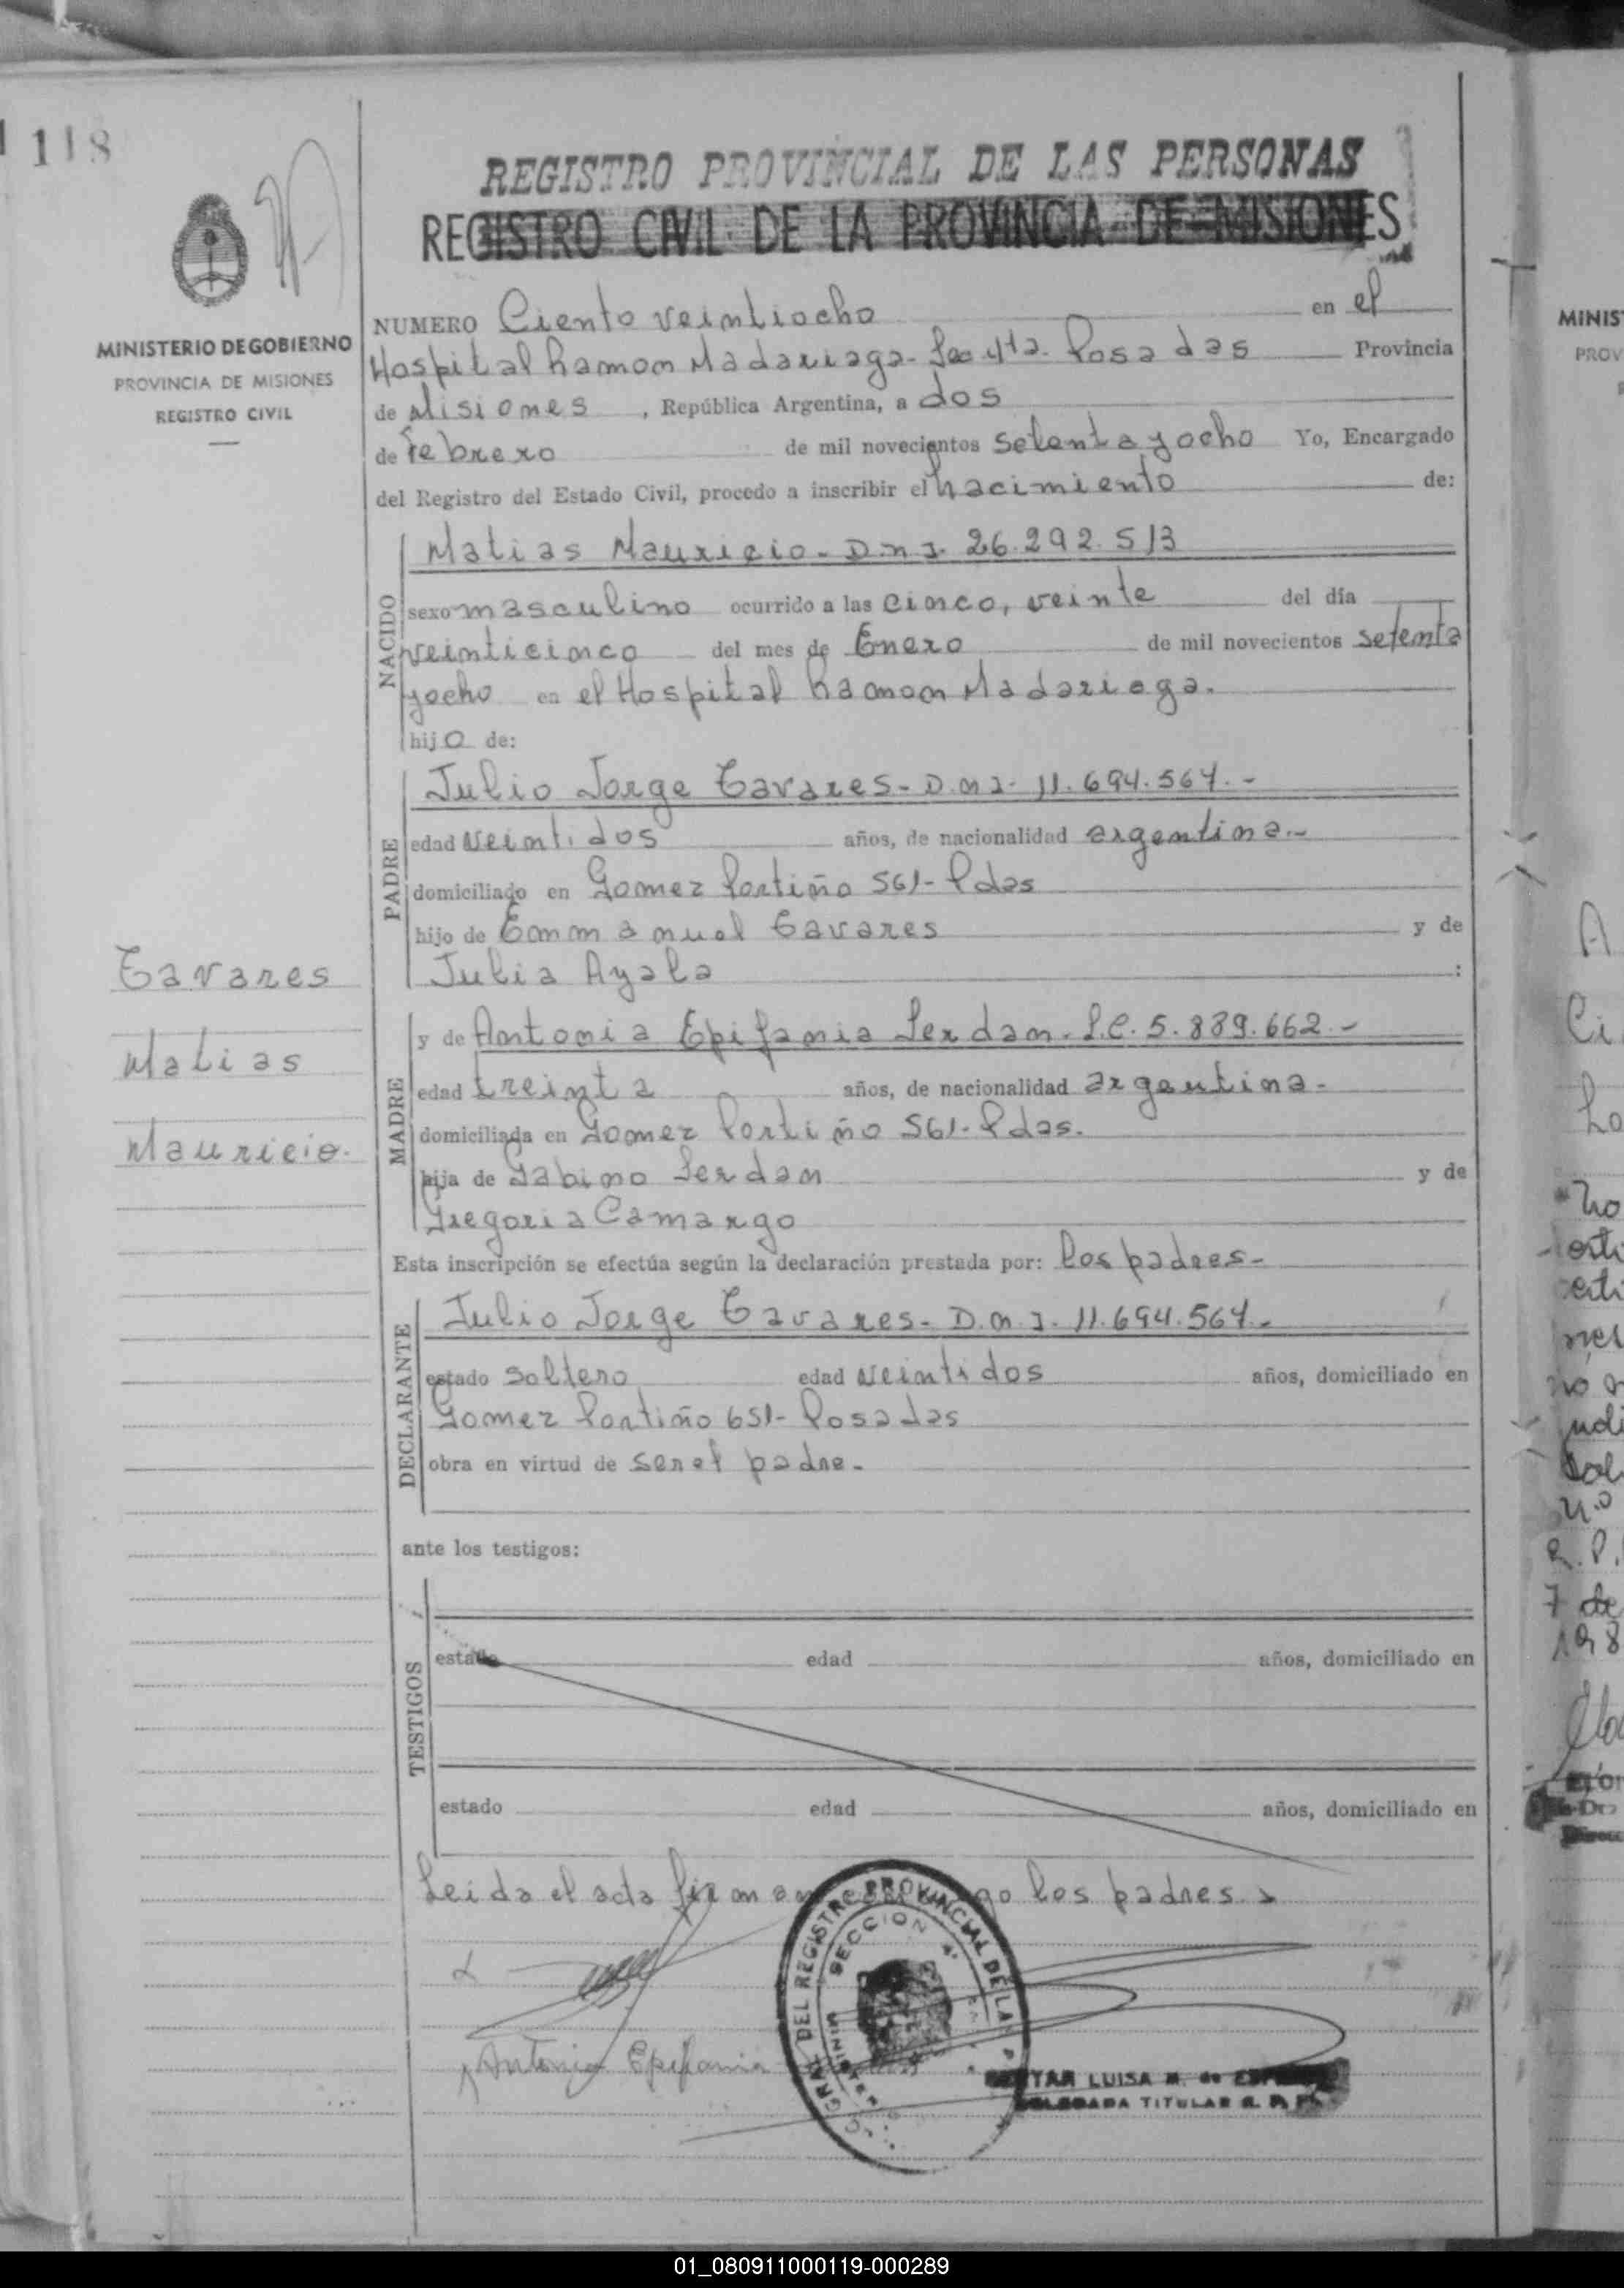 118
REGISTRO PROVINCIAL DE LAS PERSONAS
REGISTRO CIVIL DE LA PROVINCIA DE MISIONES
MINISTERIO DE GOBIERNO
PROVINCIA DE MISIONES
REGISTRO CIVIL
NUMERO Ciento veintiocho en el
Hospital Ramon Madariaga - Sec. 4ta. Posadas Provincia
de Misiones, República Argentina, a dos
de Febrero de mil novecientos setenta y ocho Yo, Encargado
del Registro del Estado Civil, procedo a inscribir el nacimiento de:
NACIDO
Matias Mauricio - D.n.I. 26.292.513
sexo masculino ocurrido a las cinco, veinte del día
veinticinco del mes de Enero de mil novecientos setenta
y ocho en el Hospital Ramon Madariaga.
hijo de:
PADRE
Julio Jorge Tavares - D.n.I. 11.694.567.-
edad veintidos años, de nacionalidad argentina.-
domiciliado en Gomez Portiño 561 - Pdas
hijo de Emmanuel Tavares y de
Julia Ayala :
Tavares
Matias
Mauricio.
MADRE
y de Antonia Epifania Serdan - L.C. 5.889.662.-
edad treinta años, de nacionalidad argentina.-
domiciliada en Gomez Portiño 561 - Pdas.
hija de Gabino Serdan y de
Gregoria Camargo
Esta inscripción se efectúa según la declaración prestada por: los padres-
DECLARANTE
Julio Jorge Tavares - D.n.I. 11.694.567.-
estado soltero edad veintidos años, domiciliado en
Gomez Portiño 651 - Posadas
obra en virtud de ser el padre.
ante los testigos:
TESTIGOS
estado edad años, domiciliado en
estado edad años, domiciliado en
Leida el acta firman los padres.
Antonia Epifania
DEL REGISTRO PROVINCIAL DE LA
SECCION 4ª
LUISA M. de
DELEGADA TITULAR R. P. P.
MINIS
PROV
7 de
198
01_080911000119-000289